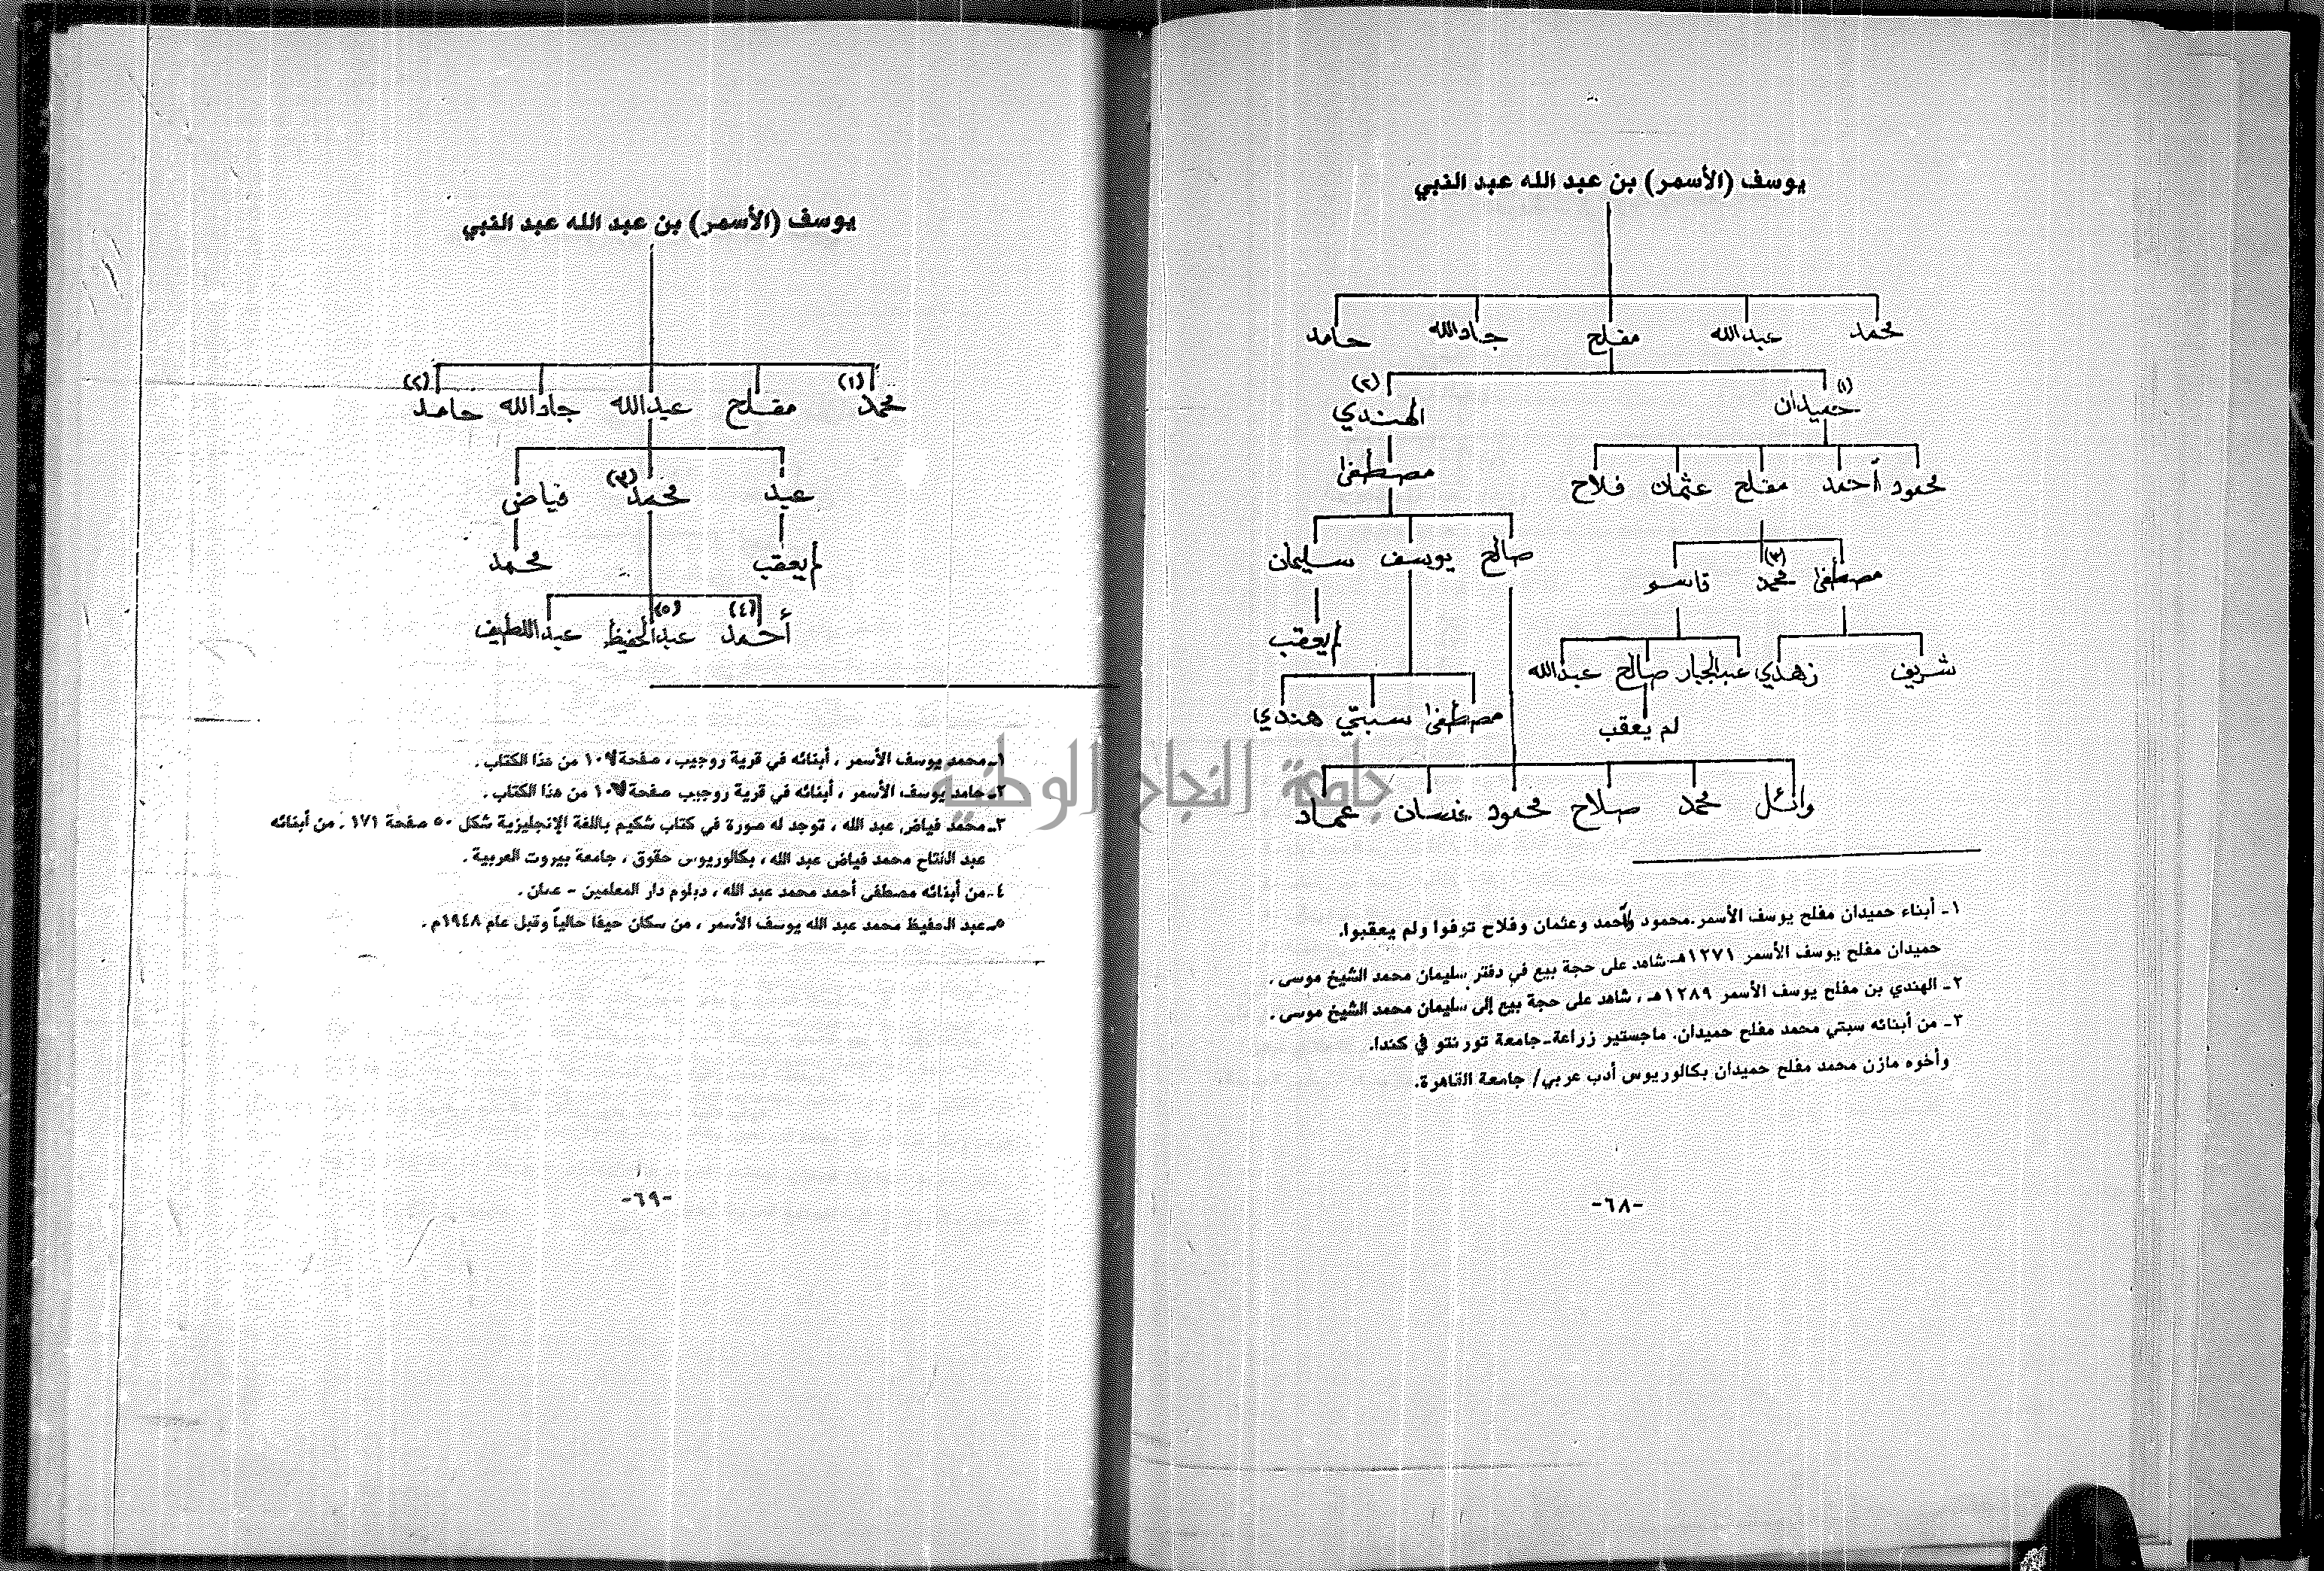 يوسف (الأسمر) بن عبد الله عبد النبي
محمد عبدالله مفلح جادالله حامد
(١) (٢)
حميدان الهندي
مصطفى
محمود أحمد مفلح عثمان فلاح
صالح يوسف سليمان
(٣)
مصطفى محمد قاسم
لم يعقب
شريف زهدي عبدالجبار صالح عبدالله
لم يعقب
مصطفى سبتي هندي
وائل محمد صلاح محمود غسان عماد
١ـ أبناء حميدان مفلح يوسف الأسمر. محمود وأحمد وعثمان وفلاح توفوا ولم يعقبوا.
حميدان مفلح يوسف الأسمر ١٢٧١هـ شاهد على حجة بيع في دفتر سليمان محمد الشيخ موسى .
٢ـ الهندي بن مفلح يوسف الأسمر ١٢٨٩هـ ، شاهد على حجة بيع إلى سليمان محمد الشيخ موسى .
٣ـ من أبنائه سبتي محمد مفلح حميدان. ماجستير زراعة-جامعة تورنتو في كندا.
وأخوه مازن محمد مفلح حميدان بكالوريوس أدب عربي/ جامعة القاهرة.
-٦٨-
يوسف (الأسمر) بن عبد الله عبد النبي
(١) (٢)
محمد مفلح عبدالله جادالله حامد
(٣)
عبد محمد فياض
لم يعقب محمد
(٤) (٥)
أحمد عبدالحفيظ عبداللطيف
١ـ محمد يوسف الأسمر ، أبنائه في قرية روجيب ، صفحة من هذا الكتاب .
٢ـ حامد يوسف الأسمر ، أبنائه في قرية روجيب صفحة من هذا الكتاب .
٣ـ محمد فياض عبد الله ، توجد له صورة في كتاب شكيم باللغة الإنجليزية شكل ٥٠ صفحة ١٧١ . من أبنائه
عبد الفتاح محمد فياض عبد الله ، بكالوريوس حقوق ، جامعة بيروت العربية .
٤ـ من أبنائه مصطفى أحمد محمد عبد الله ، دبلوم دار المعلمين - عمان .
٥ـ عبد الحفيظ محمد عبد الله يوسف الأسمر ، من سكان حيفا حالياً وقبل عام ١٩٤٨م .
-٦٩-
جامعة النجاح الوطنية